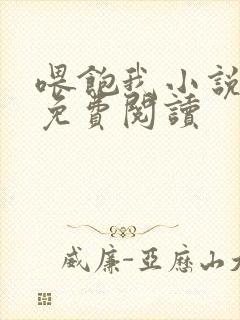 喂飽我小說
免費閱讀
威廉-亞歷山大